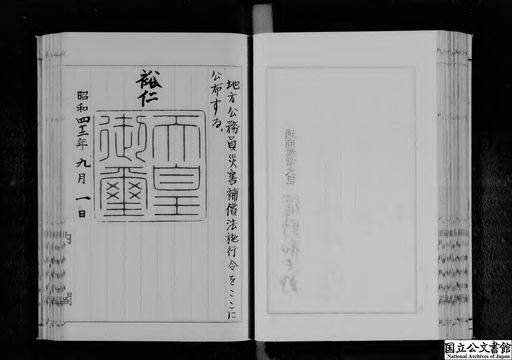 地方公務員災害補償法施行令をここに
公布する。
裕仁
天皇
御璽
昭和四十二年九月一日
国立公文書館
National Archives of Japan